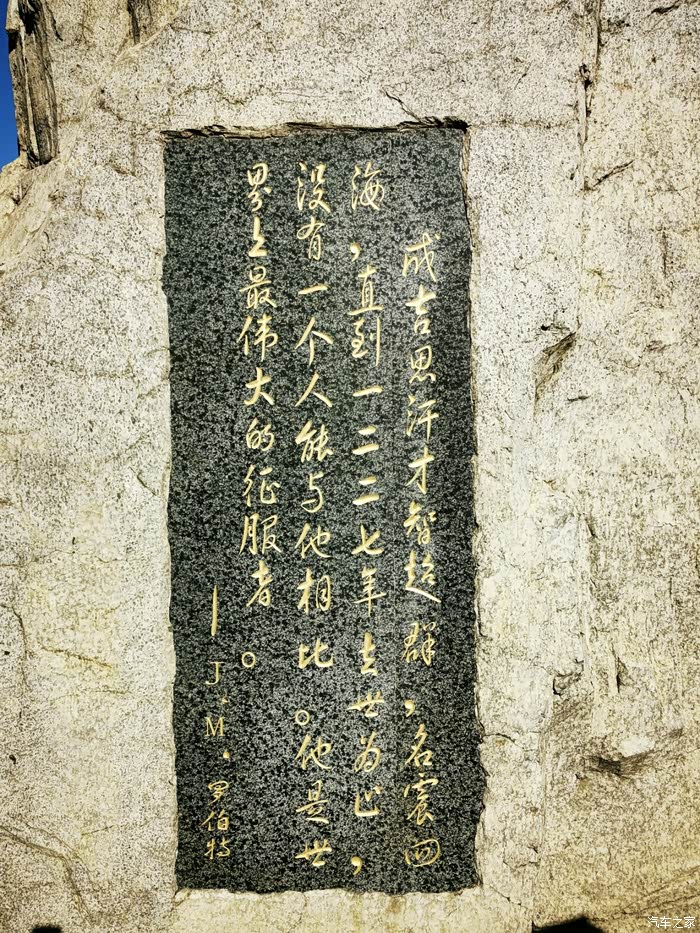 成吉思汗才智超群，名震四
海，直到一二二七年去世为止，
没有一个人能与他相比。他是世
界上最伟大的征服者。
—J·M·罗伯特
汽车之家